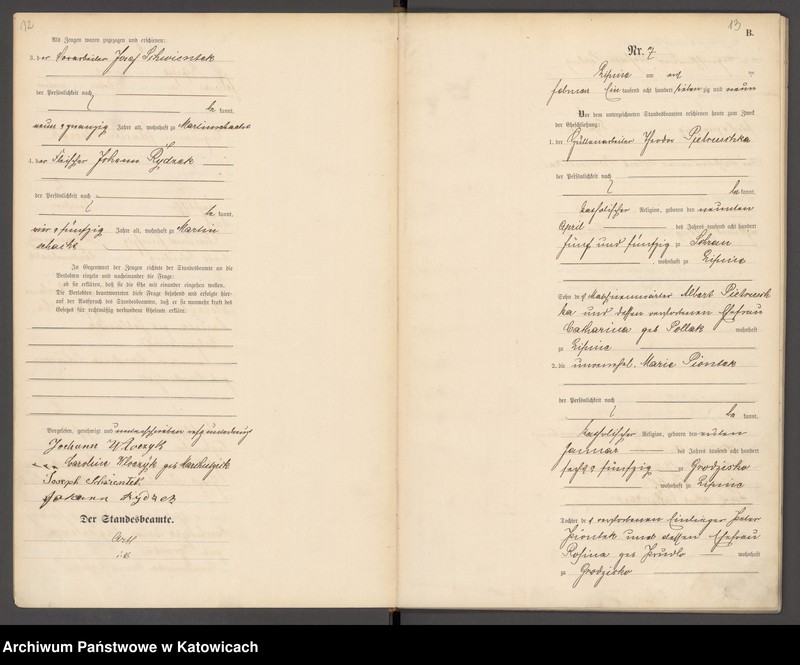 12
Als Zeugen waren zugezogen und erschienen:
3. der Vorarbeiter Josef Schwientek
der Persönlichkeit nach
be kannt,
neun & zwanzig Jahre alt, wohnhaft zu Martinschacht
4. der Fleischer Johann Rydzek
der Persönlichkeit nach
be kannt,
vier & fünfzig Jahre alt, wohnhaft zu Martin
schacht
In Gegenwart der Zeugen richtete der Standesbeamte an die
Verlobten einzeln und nacheinander die Frage:
ob sie erklären, daß sie die Ehe mit einander eingehen wollen.
Die Verlobten beantworteten diese Frage bejahend und erfolgte hier-
auf der Ausspruch des Standesbeamten, daß er sie nunmehr kraft des
Gesetzes für rechtmäßig verbundene Eheleute erkläre.
Vorgelesen, genehmigt und unterschrieben
Johann Wloczyk
Caroline Wloczyk geb
Joseph Schwientek
Johann Rydzek
Der Standesbeamte.
13
B.
Nr. 7
Lipine am acht
februar Ein tausend acht hundert sieben zig und neun
Vor dem unterzeichneten Standesbeamten erschienen heute zum Zweck
der Eheschließung:
1. der Hüttenarbeiter Theodor Pietruschka
der Persönlichkeit nach
be kannt,
katholischer Religion, geboren den neunten
April des Jahres tausend acht hundert
fünf und fünfzig zu Sohrau
, wohnhaft zu Lipine
Sohn des Maschinenwärter Albert Pietrusch
ka und dessen verstorbenen Ehefrau
Catharina geb Pollak wohnhaft
zu Lipine
2. die unverehel. Marie Piontek
der Persönlichkeit nach
be kannt,
katholischer Religion, geboren den
Januar des Jahres tausend acht hundert
sechs & fünfzig zu Grodzisko
, wohnhaft zu Lipine
Tochter des verstorbenen Einlieger Peter
Piontek und dessen Ehefrau
Rosina geb Prudlo wohnhaft
zu Grodzisko
Archiwum Państwowe w Katowicach